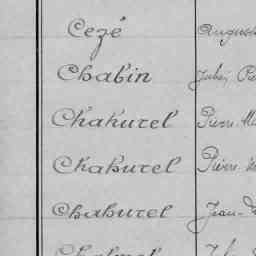 Cezé August
Chabin Julien Pie
Chakurel Pierre-M
Chakurel Pierre-M
Chaburel Jean-